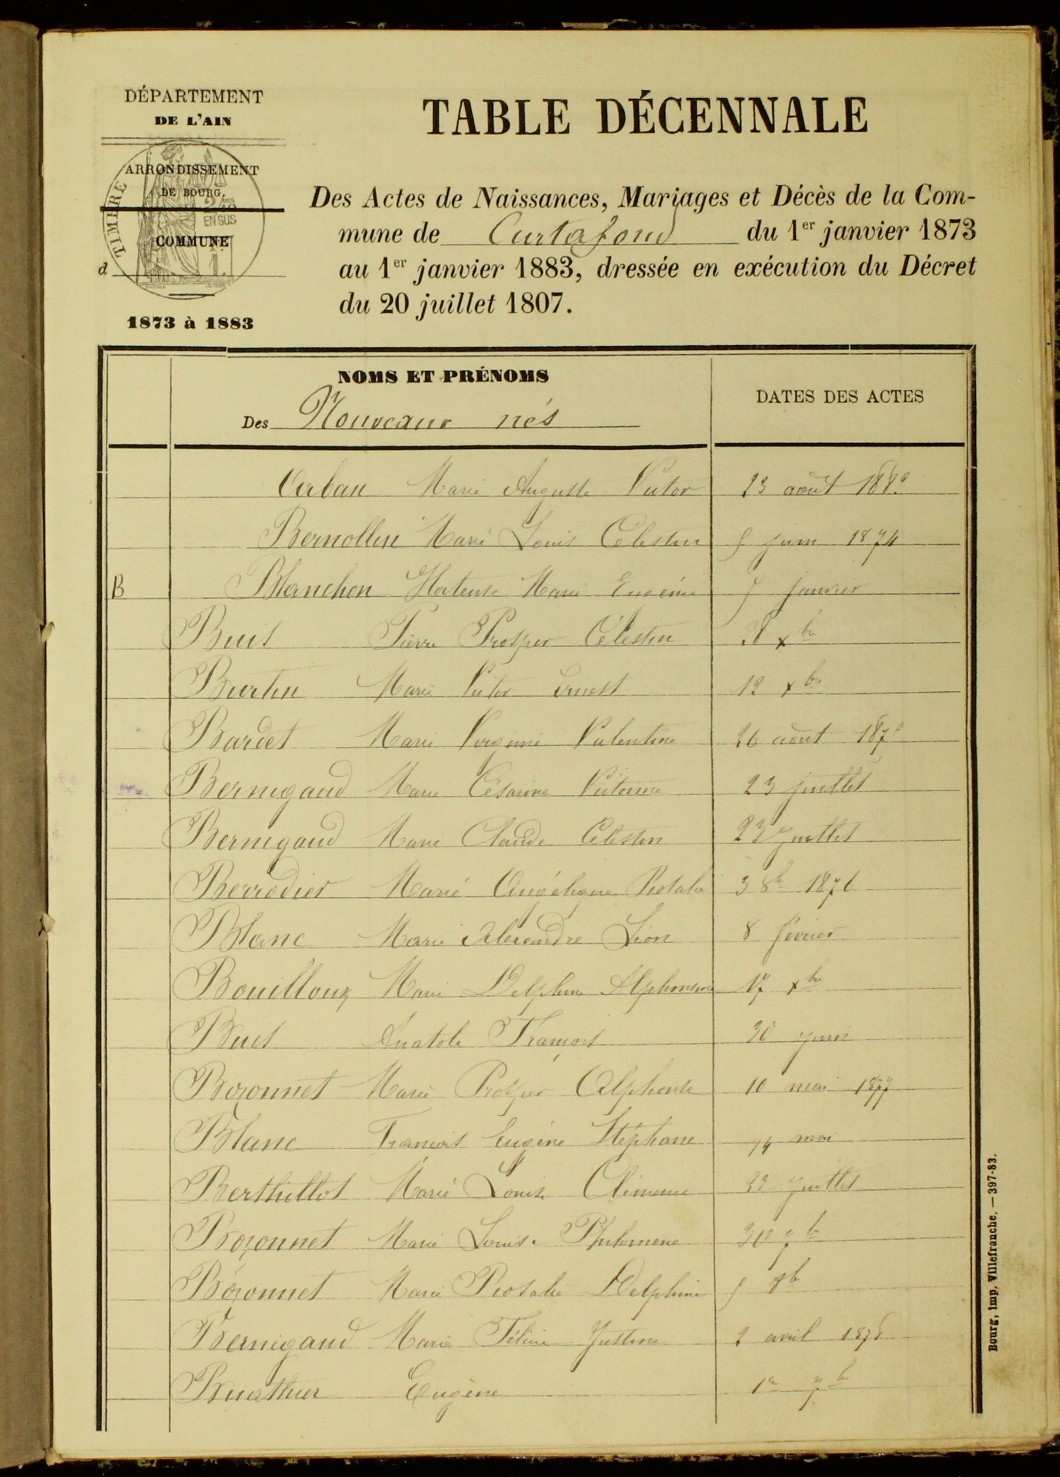 DÉPARTEMENT
DE L'AIN
ARRONDISSEMENT
DE BOURG.
TIMBRE
EN SUS
COMMUNE
d
1873 à 1883
TABLE DÉCENNALE
Des Actes de Naissances, Mariages et Décès de la Com-
mune de Curtafond du 1er janvier 1873
au 1er janvier 1883, dressée en exécution du Décret
du 20 juillet 1807.
NOMS ET PRÉNOMS
Des Nouveaux nés
DATES DES ACTES
Marie Auguste Victor 23 août
Bernollin Marie Louis Célestin juin 1874
B Blanchon Hortense Marie Eugénie janvier
Buis Pierre Prosper Célestin xbre
Burtin Marie Victor Ernest 12 xbre
Bardet Marie Virginie Valentine 26 août 187
Bernigaud Marie Césarine Victorine 23 juillet
Bernigaud Marie Claude Célestin 23 juillet
Berrodier Marie Angélique Rosalie 3 8b 1876
Blanc Marie Alexandre Léon 8 février
Bouilloux Marie Delphine Alphonsine 17 xbre
Buis Anatole François 30 juin
Bozonnet Marie Prosper Alphonse 10 mai 1877
Blanc François Eugène Stéphane 14 mai
Berthillot Marie Louis 23 juillet
Bozonnet Marie Louise Philomène 30 7b
Bozonnet Marie Rosalie Delphine 9b
Bernigaud Marie Justine 2 avril 1878
Eugène 1er 7b
Bourg, imp. Villefranche. — 397-83.